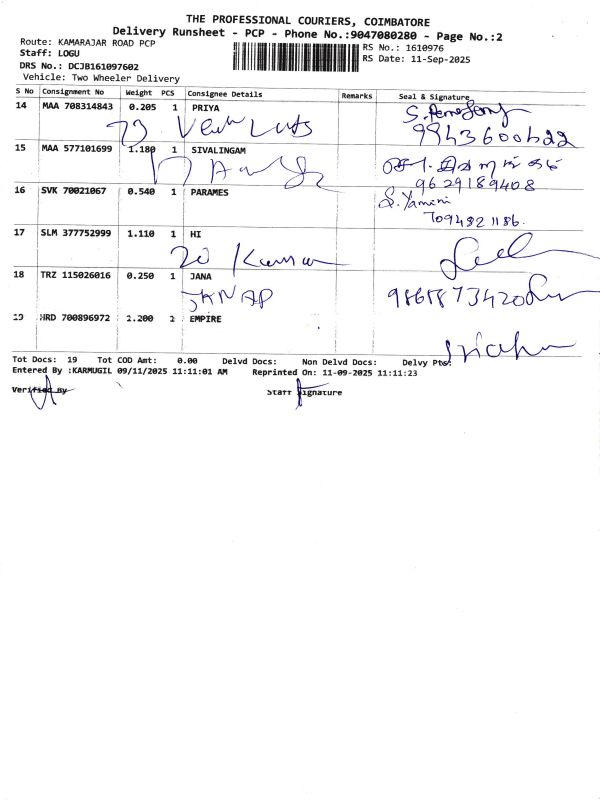 THE PROFESSIONAL COURIERS, COIMBATORE
Delivery Runsheet - PCP - Phone No.:9047080280 - Page No.:2
Route: KAMARAJAR ROAD PCP
Staff: LOGU
DRS No.: DCJB161097602
Vehicle: Two Wheeler Delivery
RS No.: 1610976
RS Date: 11-Sep-2025
S No Consignment No Weight PCS Consignee Details Remarks Seal & Signature
14 MAA 708314843 0.205 1 PRIYA
9943600622
15 MAA 577101699 1.180 1 SIVALINGAM
9629189408
16 SVK 70021067 0.540 1 PARAMES S. Yamini
7094821186.
17 SLM 377752999 1.110 1 HI
20 Kumar
18 TRZ 115026016 0.250 1 JANA
9865873420
19 HRD 700896972 1.200 1 EMPIRE
Tot Docs: 19 Tot COD Amt: 0.00 Delvd Docs: Non Delvd Docs: Delvy Pts:
Entered By :KARMUGIL 09/11/2025 11:11:01 AM Reprinted On: 11-09-2025 11:11:23
Verified By Staff Signature